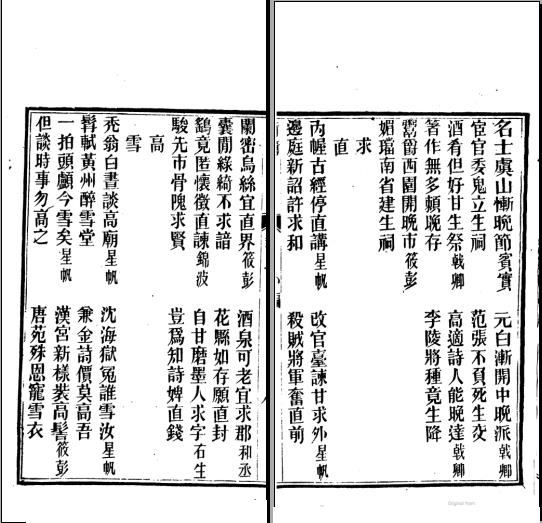 名士虞山慚晚節賓實 元白漸開中晚派戟卿
宦官委鬼立生祠 范張不負死生交
酒肴但好甘生祭戟卿 高適詩人能晚達戟卿
著作無多頼晚存 李陵將種竟生降
鬻爵西園開晚市筱彭
媚璫南省建生祠
求
直
內幄古經停直講星帆 改官臺諫甘求外星帆
邊庭新詔許求和 殺賊將軍奮直前
闌密烏絲宜直界筱彭 酒泉可老宜求郡和丞
囊閒綠綺不求諳 花縣如存願直封
鷂竟匿懷徵直諫錦波 自甘磨墨人求字右生
駿先市骨隗求賢 豈爲知詩婢直錢
高
雪
禿翁白晝談高廟星帆 沈海獄冤誰雪汝星帆
髯軾黃州醉雪堂 兼金詩價莫高吾
一拍頭顱今雪矣星帆 漢宮新樣裝高髻筱彭
但談時事勿高之 唐苑殊恩寵雪衣
Original from